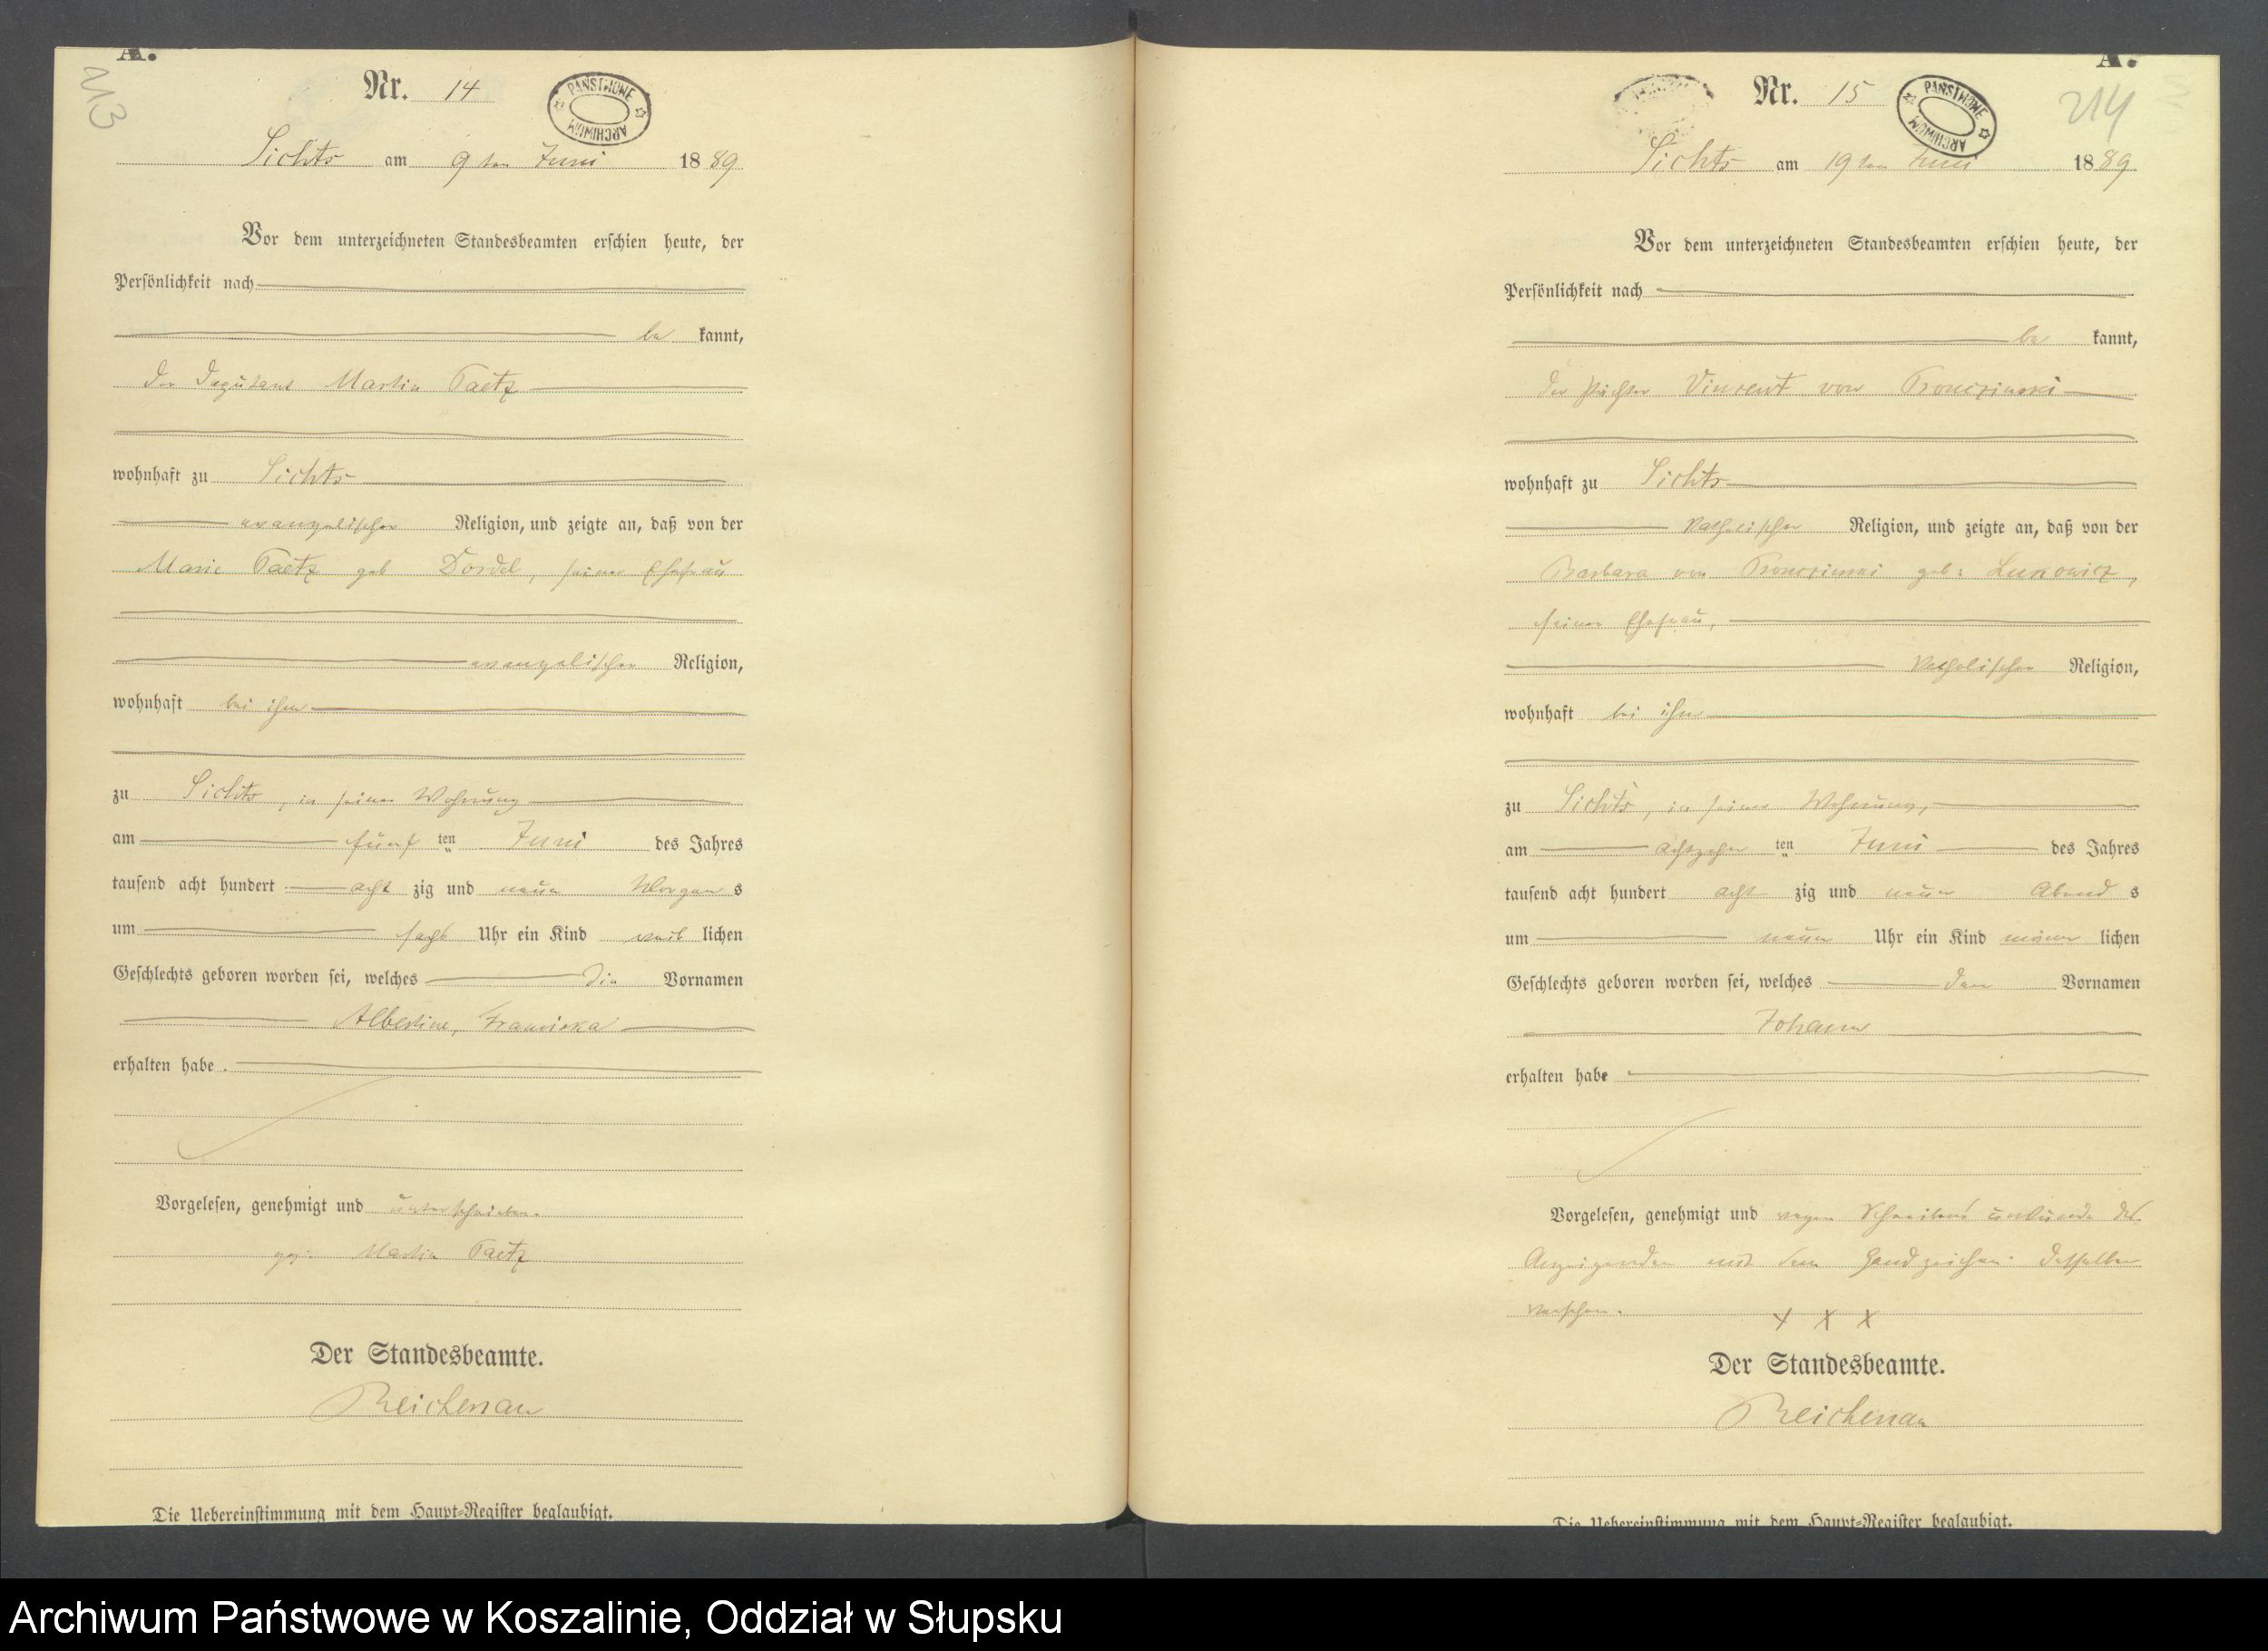 A.
213
Nr. 14
PAŃSTWOWE ARCHIWUM
Sichts am 9ten Juni 1889
Vor dem unterzeichneten Standesbeamten erschien heute, der
Persönlichkeit nach
be kannt,
der Deputant Martin Paetz
wohnhaft zu Sichts
evangelischer Religion, und zeigte an, daß von der
Marie Paetz geb Dordel, seiner Ehefrau
evangelischer Religion,
wohnhaft bei ihm
zu Sichts, in seiner Wohnung
am fünf ten Juni des Jahres
tausend acht hundert acht zig und neun Morgen s
um sechs Uhr ein Kind weib lichen
Geschlechts geboren worden sei, welches die Vornamen
Albertine, Franziska
erhalten habe.
Vorgelesen, genehmigt und unterschrieben.
gez: Martin Paetz
Der Standesbeamte.
Reichenau
Die Uebereinstimmung mit dem Haupt-Register beglaubigt.
A.
214
Nr. 15
PAŃSTWOWE ARCHIWUM
Sichts am 19ten Juni 1889
Vor dem unterzeichneten Standesbeamten erschien heute, der
Persönlichkeit nach
be kannt,
der Pächter Vincent von
wohnhaft zu Sichts
katholischer Religion, und zeigte an, daß von der
Barbara von geb: Lukowicz,
seiner Ehefrau,
katholischer Religion,
wohnhaft bei ihm
zu Sichts, in seiner Wohnung,
am achtzehn ten Juni des Jahres
tausend acht hundert acht zig und neun Abend s
um neun Uhr ein Kind männ lichen
Geschlechts geboren worden sei, welches den Vornamen
Johann
erhalten habe
Vorgelesen, genehmigt und wegen Schreibens unkunde des
Anzeigenden mit dem Handzeichen desselben
versehen. X X X
Der Standesbeamte.
Reichenau
Die Uebereinstimmung mit dem Haupt-Register beglaubigt.
Archiwum Państwowe w Koszalinie, Oddział w Słupsku